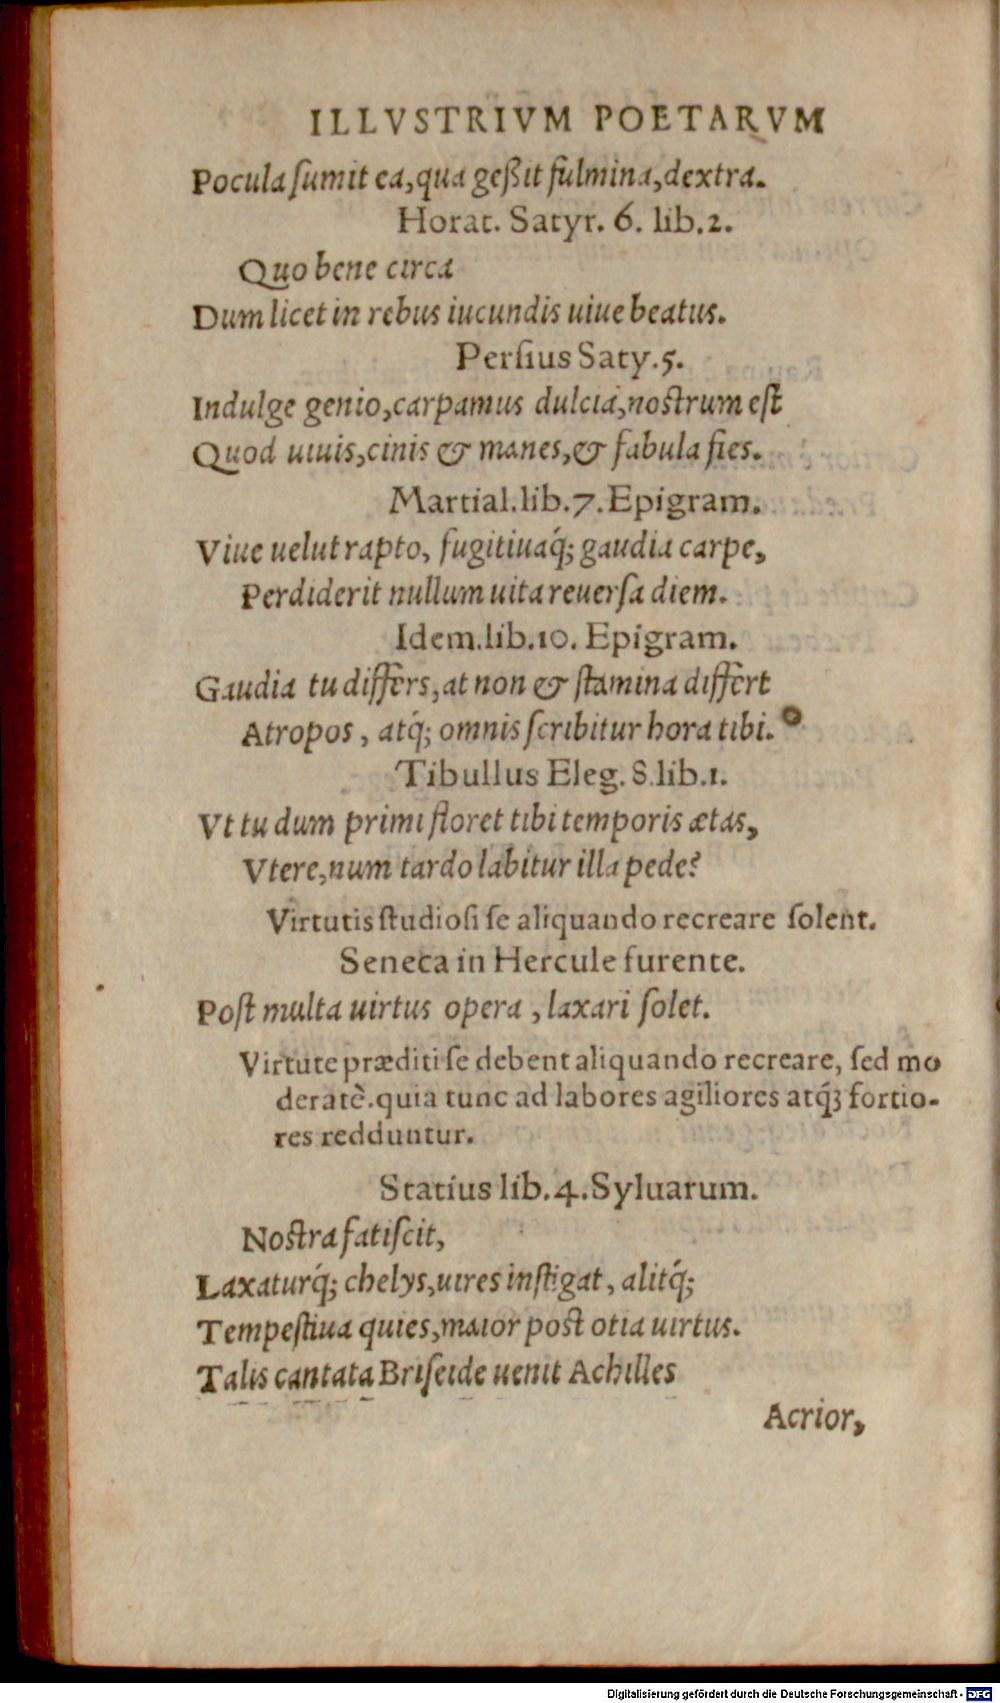 ILLVSTRIVM POETARVM
Pocula ſumit ea, qua geßit fulmina, dextra.
Horat. Satyr. 6. lib.2.
Quo bene circa
Dum licet in rebus iucundis uiue beatus.
Perſius Saty.5.
Indulge genio, carpamus dulcia, noſtrum eſt
Quod uiuis, cinis & manes, & fabula fies.
Martial. lib.7. Epigram.
Viue uelut rapto, fugitiuaq́; gaudia carpe,
Perdiderit nullum uita reuerſa diem.
Idem. lib.10. Epigram.
Gaudia tu differs, at non & ſtamina differt
Atropos, atq́; omnis ſcribitur hora tibi.
Tibullus Eleg. 8. lib.1.
Vt tu dum primi floret tibi temporis ætas,
Vtere, num tardo labitur illa pede?
Virtutis ſtudioſi ſe aliquando recreare ſolent.
Seneca in Hercule furente.
Poſt multa uirtus opera, laxari ſolet.
Virtute præditi ſe debent aliquando recreare, ſed mo
deratè. quia tunc ad labores agiliores atq́ꝫ fortio-
res redduntur.
Statius lib.4. Syluarum.
Noſtra fatiſcit,
Laxaturq́; chelys, uires inſtigat, alitq́;
Tempeſtiua quies, maior poſt otia uirtus.
Talis cantata Briſeide uenit Achilles
Acrior,
Digitalisierung gefördert durch die Deutsche Forschungsgemeinschaft - DFG